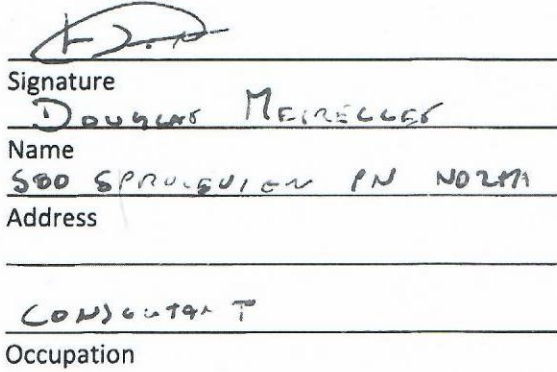 Signature
Douglas Meirelles
Name
580 SPRUCEVIEW PN
Address
CONSULTANT
Occupation